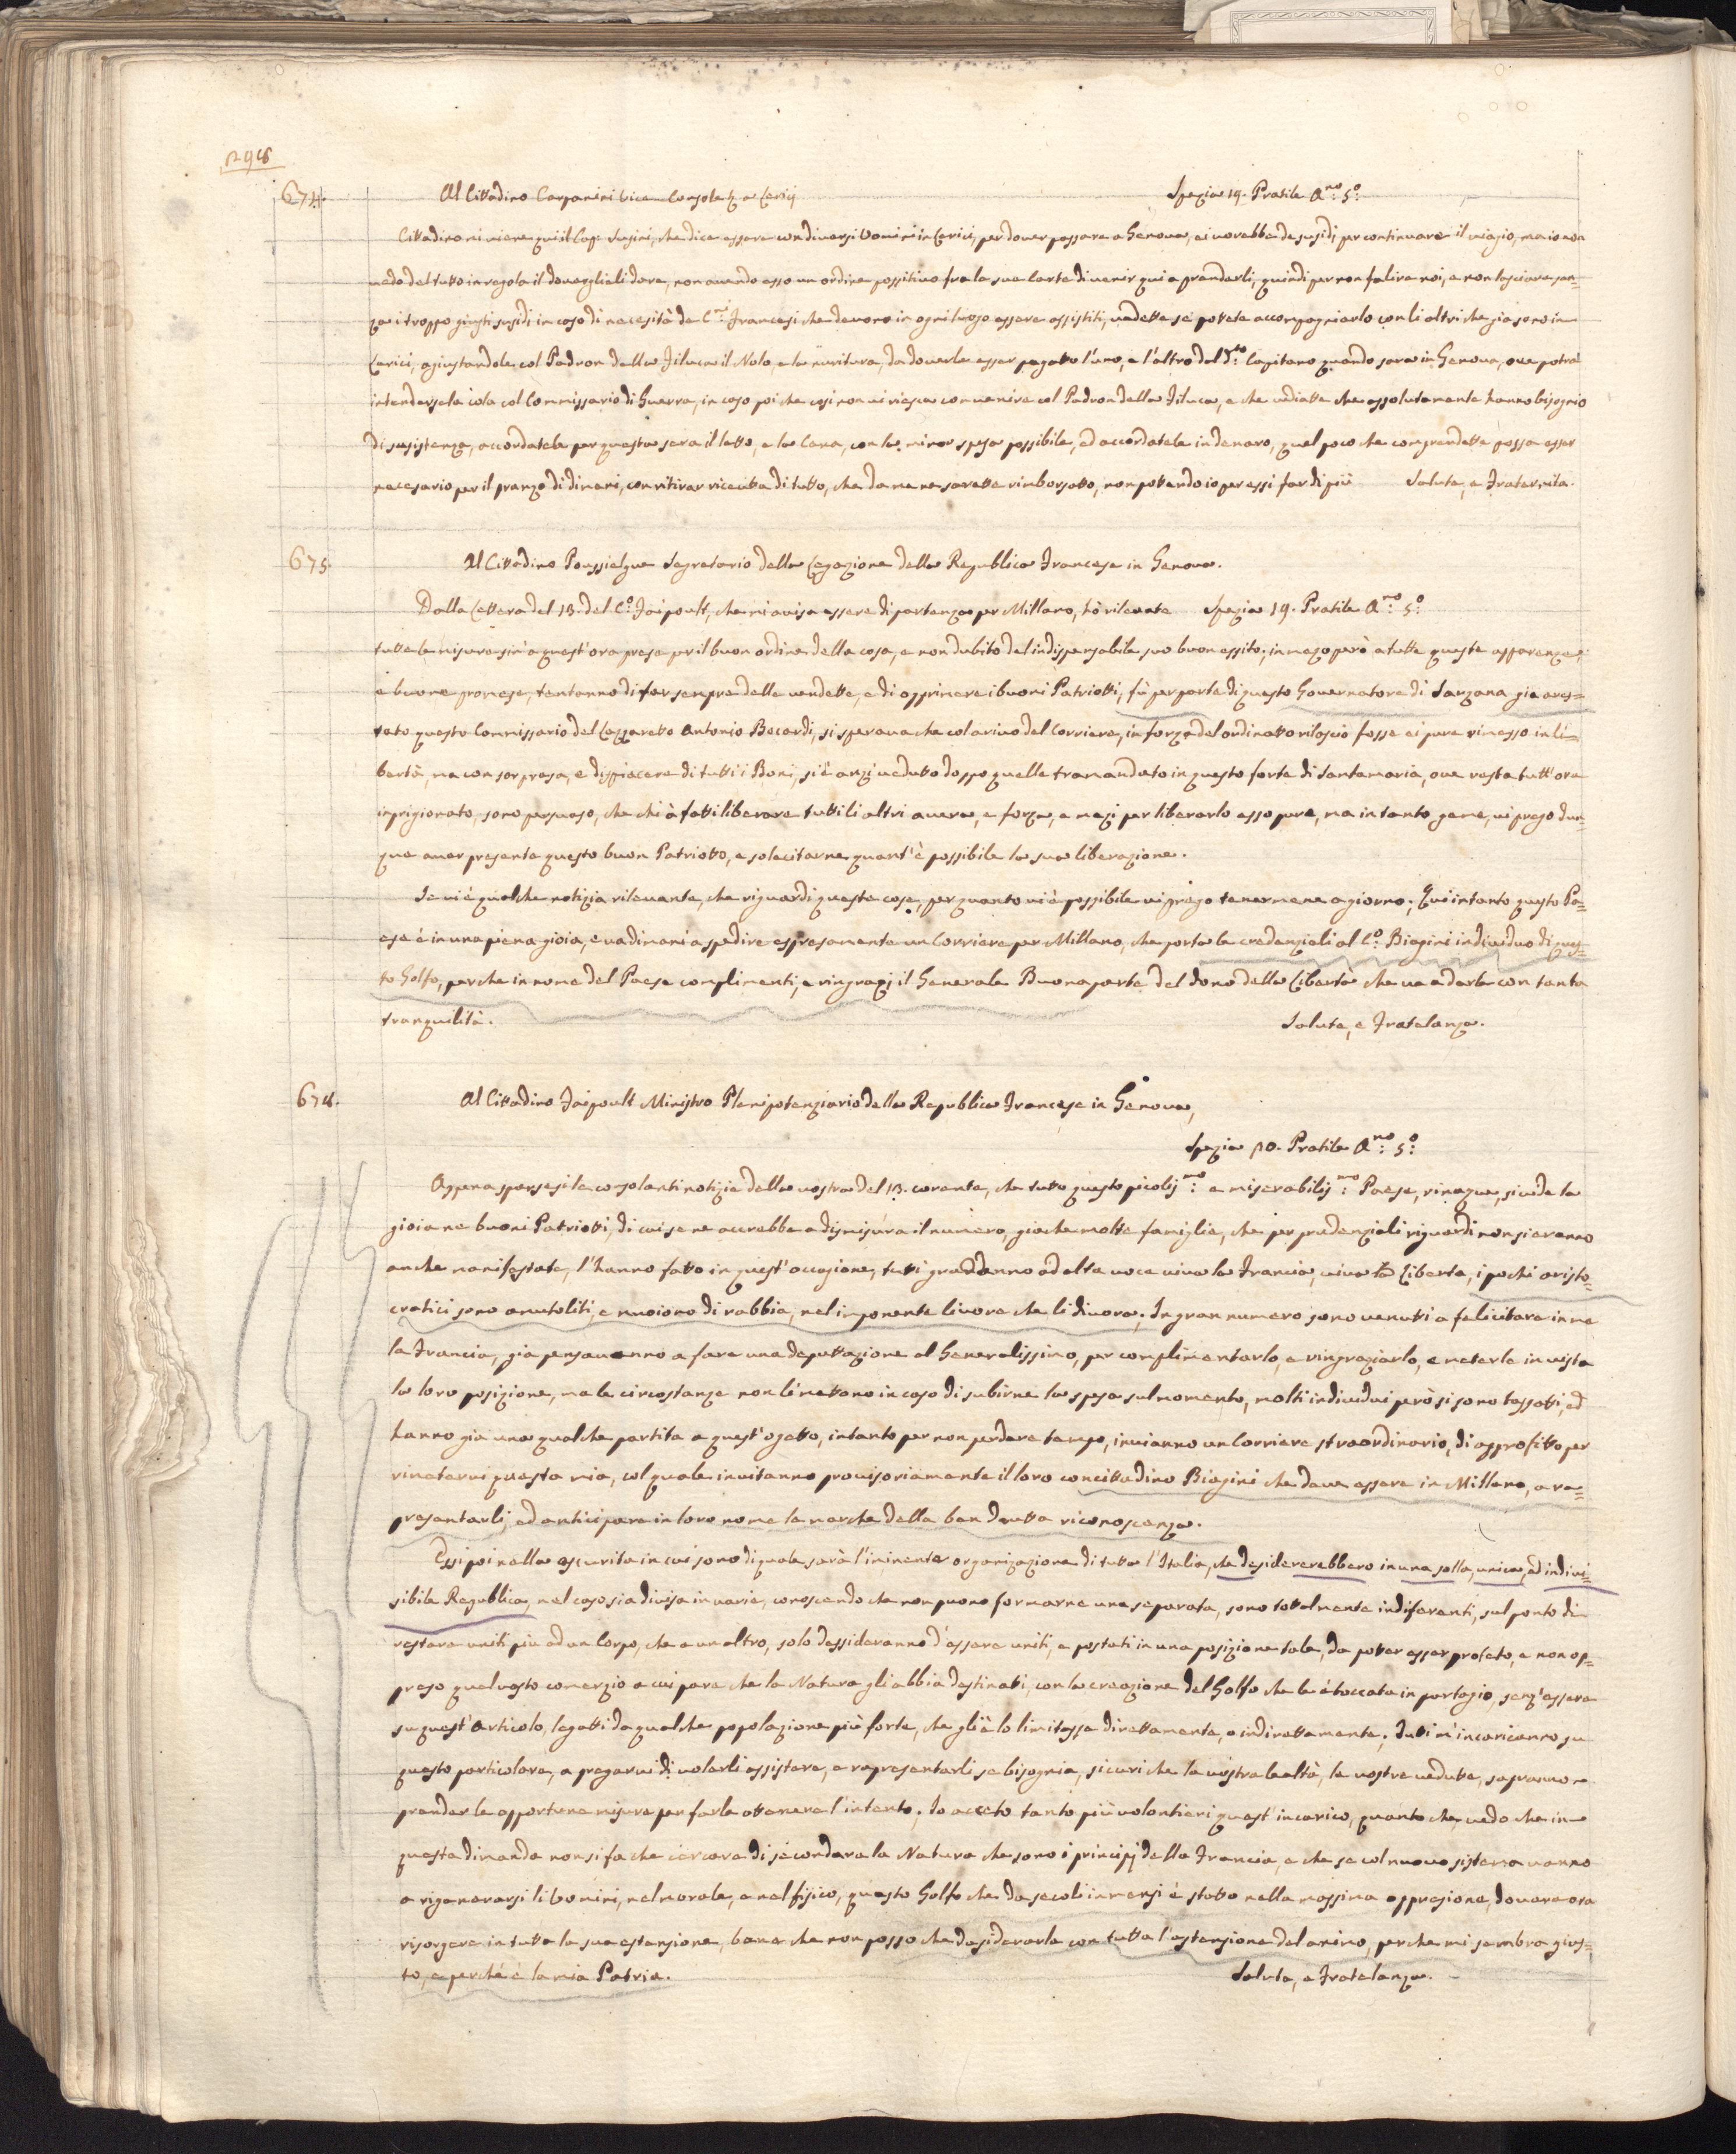 296
674. Al Cittadino Carpanini Vice Console a Lerici Spezia 19. Pratile A.no 5.o
Cittadino mi viene qui il Cap. Susini, che dice essere con diversi Uomini in Lerici, per dover passare a Genova, ei vorebbe de susidj per continuare il viagio, ma io non
vedo del tutto in regola il doverglieli dare, non avendo esso un ordine possitivo fra le sue Carte di venir qui a prenderli, quindi per non falire noi, e non lasciare sen=
za i troppo giusti susidj in caso di necesità de C.ni Francesi che devono in ogni luogo essere assistiti, vedette se potete accompagniarlo con li altri che gia sono in
Lerici, agiustandole col Padron della Filuca il Nolo, e la nuritura, da doverle esser pagatto l'uno, e l'altro dal d.to Capitano quando sara in Genova, ove potrà
intendersela colà col Commissario di Guerra, in caso poi che cosi non vi riesca convenire col Padron della Filuca, e che vediatte che assolutamente hanno bisognio
di susistenza, accordatele per questa sera il letto, e la Cena, con la minor spesa possibile, ed accordatele in denaro, quel poco che comprendette possa esser
necesario per il pranzo di dimani, con ritirar riceuta di tutto, che da me ne sarette rimborsatto, non pottendo io per essi far di più Salute, e Fraternita.
675. Al Cittadino Poussielgue Segretario della Legazione della Republica Francese in Genova.
Dalla Lettera del 13. del C.o Faipoult, che mi avisa essere di partenza per Millano, hò rilevate Spezia 19. Pratile A.no 5.o
tutte le misure sin a quest'ora prese per il buon ordine della cosa, e non dubito del indispensabile suo buon essito; in mezo però a tutte queste apparenze,
e buone promese, tentanno di far sempre delle vendette, e di opprimere i buoni Patriotti, fù per parte di questo Governatore di Sarzana gia ares=
tato questo Commissario del Lazzaretto Antonio Bocardi, si sperava che col arivo del Corriere, in forza del ordinatto rilascio fosse ei pure rimesso in li=
bertà, ma con sorpresa, e dispiacere di tutti i Boni, si è anzi vedutto doppo quelle tramandato in questo forte di Santamaria, ove resta tutt'ora
inprigionato, sono persuaso, che chi à fatti liberare tutti li altri avera, e forza, e mezi per liberarlo esso pure, ma intanto geme, vi prego dun=
que aver presente questo buon Patriotto, e solecitarne quant'è possibile la sua liberazione.
Se vi è qualche notizia rilevante, che riguardi queste cose, per quanto vi è possibile vi prego tenermene a giorno; Qui intanto questo Pa=
ese è in una piena gioia, e va dimani a spedire espresamente un Corriere per Millano, che porta le credenziali al C.o Biagini individuo di ques=
to Golfo, perche in nome del Paese complimenti, e ringrazj il Generale Buonaparte del dono della Libertà che va a darle con tanta
tranquilità. Salute, e Fratelanza.
676. Al Cittadino Faipoult Ministro Plenipotenziario della Republica Francese in Genova,
Spezia 20. Pratile A.no 5.o
Appena sparsesi le consolanti notizie della vostra del 13. corente, che tutto questo picolis.mo e miserabilis.mo Paese, rinaque, si vide la
gioia ne buoni Patriotti, di cui se ne accrebbe a dismisura il numero, giache molte famiglie, che per prudenziali riguardi non si eranno
anche manifestate, l'hanno fatto in quest'occasione, tutti griddanno ad alta voce viva la Francia, viva la Liberta, i pochi aristo=
cratici sono amutoliti, e muoiono di rabbia, nel imponente livore che li divora; In gran numero sono venutti a felicitare in me
la Francia, gia pensavanno a fare una deputtazione al Generalissimo, per complimentarlo, e ringraziarlo, e meterle in vista
la loro posizione, ma le circostanze non li mettono in caso di subirne la spesa sul momento, molti individui però si sono tassatti, ed
hanno gia una qualche partita a quest'ogetto, intanto per non perdere tempo, invianno un Corriere straordinario, di approfitto per
rimetervi questa mia, col quale invitanno provisoriamente il loro concittadino Biagini che deve essere in Millano, a ra=
presentarli, ed anticipare in loro nome le marche della ben dovutta riconoscenza.
Essi poi nella oscurita in cui sono di quale sarà l'iminente organizazione di tutta l'Italia, che desidererebbero in una solla, unica, ed indivi=
sibile Republica, nel caso sia divisa in varie, conoscendo che non puono formarne una separata, sono totalmente indiferenti, sul ponto di
restare uniti più ad un Corpo, che a un altro, solo dessideranno d'essere uniti, e postati in una posizione tale, da poter esser proteto, e non op=
preso quel vasto comerzio a cui pare che la Natura gli abbia destinati, con la creazione del Golfo che le è toccata in partagio, senz'essere
su quest'Articolo, legatti da qualche popolazione più forte, che gliè lo limitasse direttamente, o indirettamente; Tutti m'incaricanno su
questo particolare, a pregarvi di volerli assistere, e rapresentarli se bisognia, sicuri che la vostra lealtà, le vostre vedute, sapranno
prender le opportune misure per farle ottenere l'intento; Io acceto tanto più volontieri quest'incarico, quanto che vedo che in
questa dimanda non si fa che cercare di secondare la Natura che sono i principj della Francia, e che se col nuovo sistema vanno
a rigenerarsi li Uomini, nel morale, e nel fisico, questo Golfo che da secoli inmensi è statto nella massima oppresione, dovere ora
risorgere in tutta la sua estensione, bene che non posso che desiderarle con tutta l'estensione del animo, perche mi sembra gius=
to, e perché è la mia Patria. Salute, e Fratelanza.